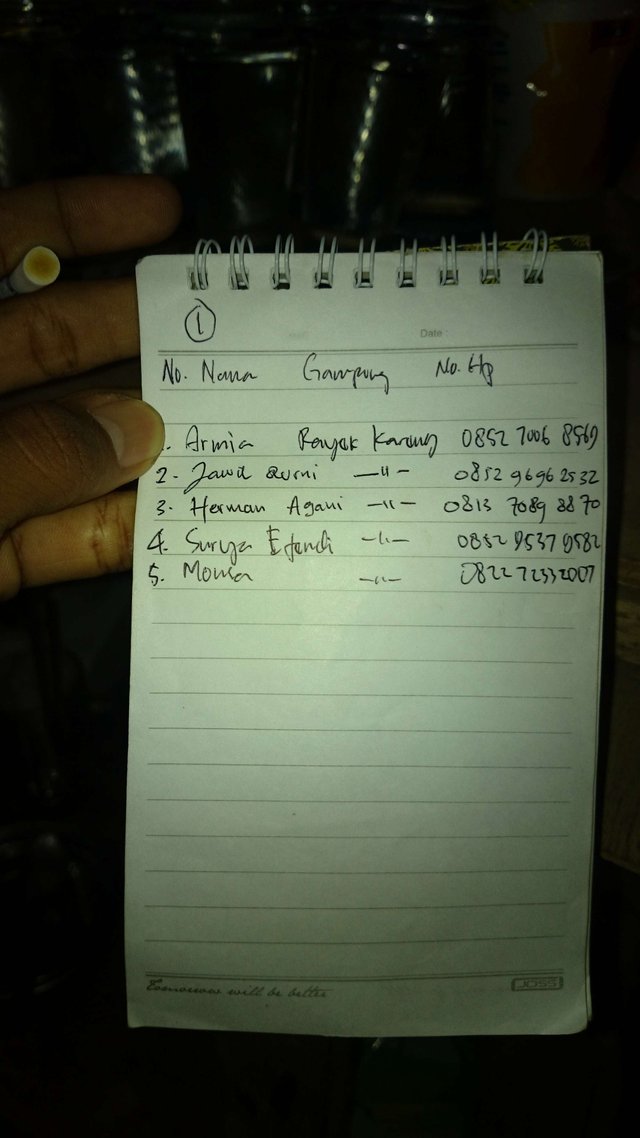 1
Date :
No. Nama Gampong No. Hp
1. Armia Rayek Kareung 0852 7006 8569
2. Jawd Qurni —〃— 0852 9696 2532
3. Herman Agani —〃— 0813 7089 8870
4. Surya Efendi —〃— 0852 9537 9582
5. Monsa —〃— 0822 72332007
Tomorrow will be better
JOSS